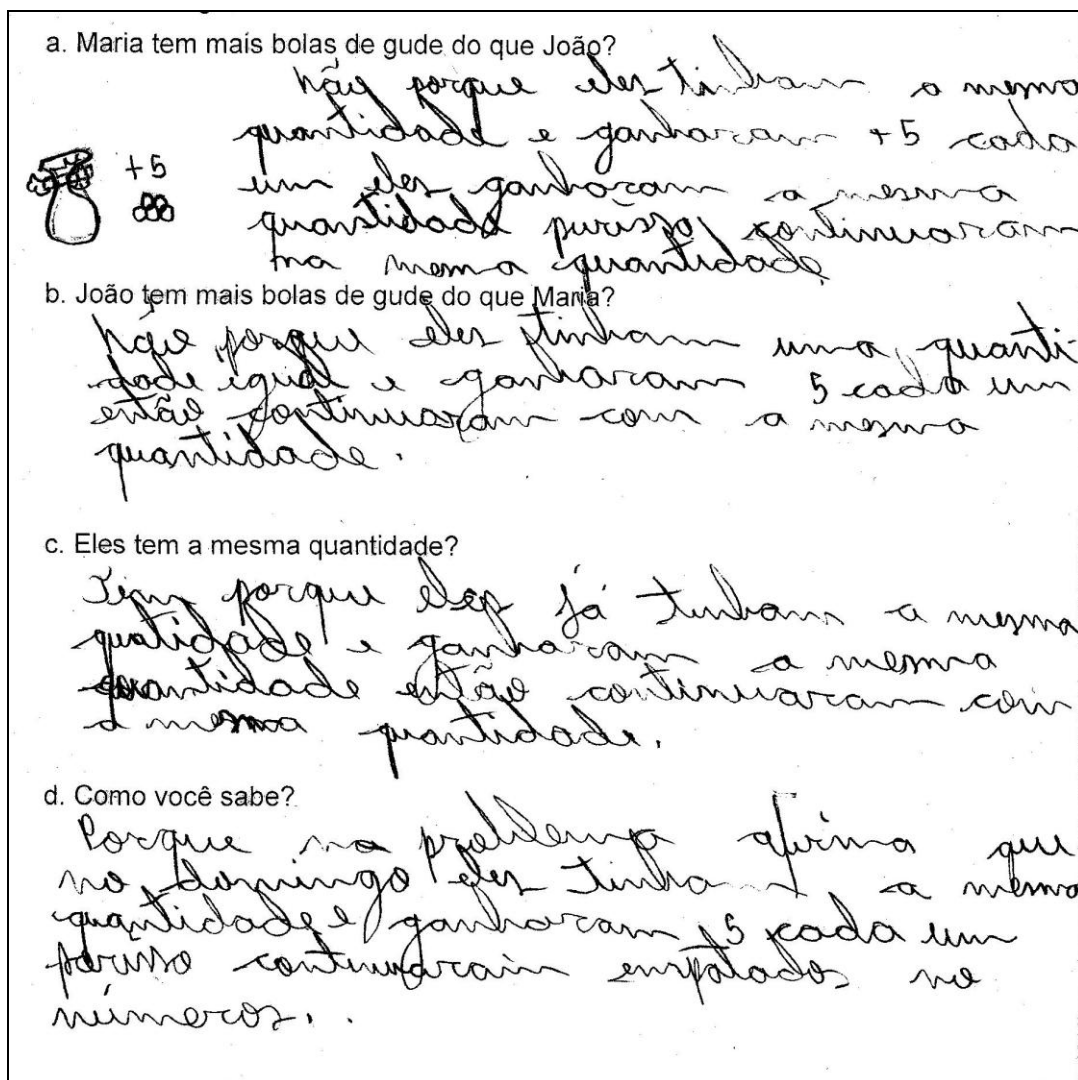 a. Maria tem mais bolas de gude do que João?
não porque eles tinham a mesma
quantidade e ganharam +5 cada
+5
um eles ganharam a mesma
quantidade purisso continuaram
na mema quantidade
b. João tem mais bolas de gude do que Maria?
não porque eles tinham uma quanti-
dade igual e ganharam 5 cada um
então continuaram com a mesma
quantidade.
c. Eles tem a mesma quantidade?
Tem porque eles já tinham a mesma
quatidade e ganharam a mesma
quantidade então continuaram com
a mesma quantidade.
d. Como você sabe?
Porque no problema afirma que
no domingo eles tinham a mesma
quantidade e ganharam 5 cada um
porisso continuaram empatados no
números..